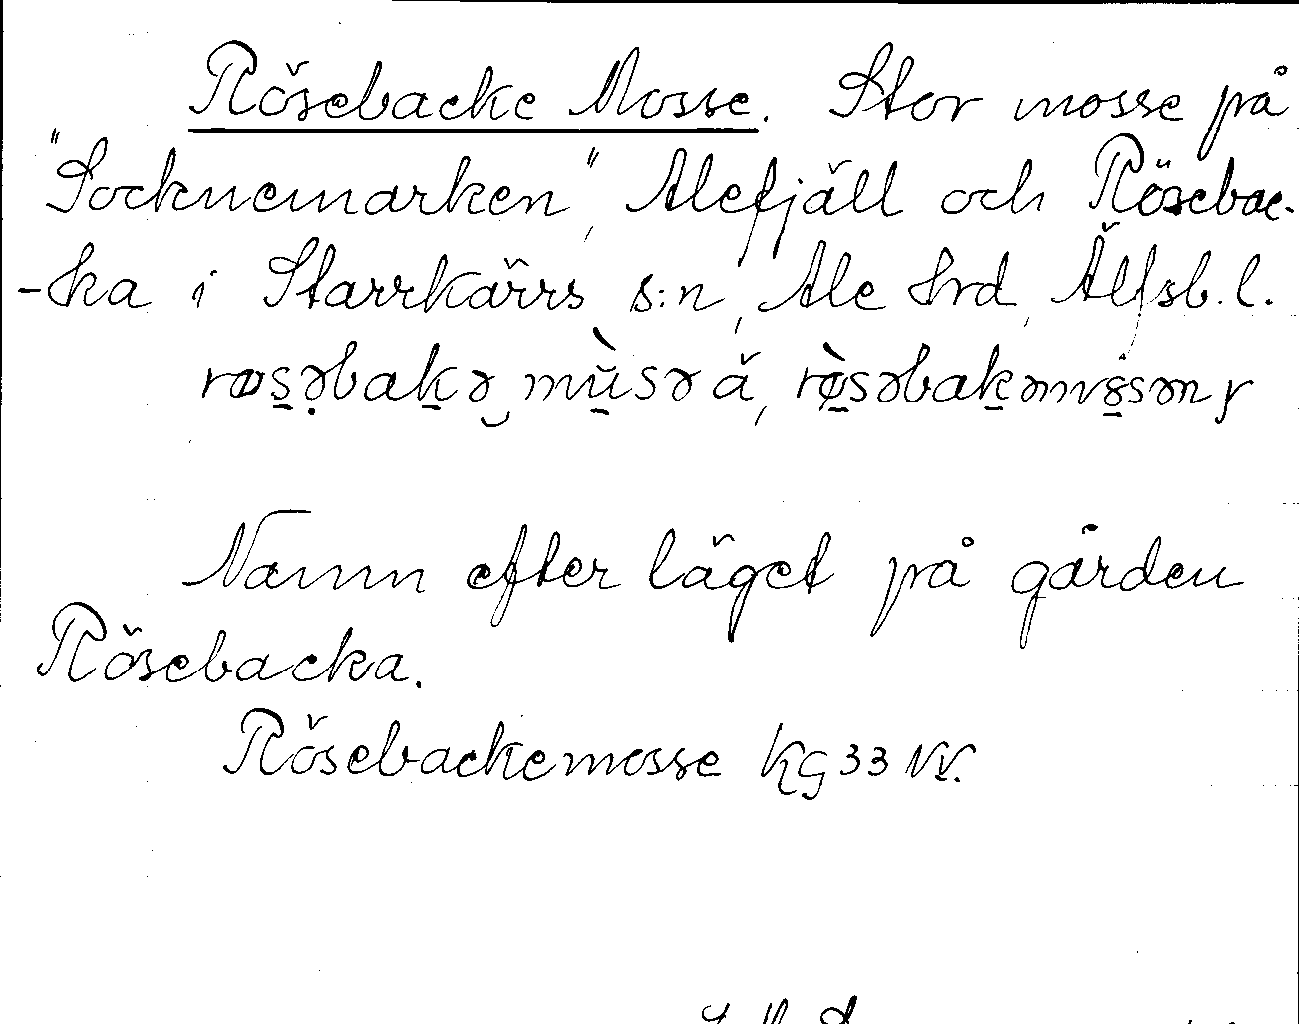 Rösebacke Mosse. Stor mosse på
"Socknemarken", Alefjäll och Rösebac-
-ka i Starrkärrs s:n, Ale hrd, Älfsb. l.
røsəbakə mùsə ä, rø̀səbakəmɷsən ɼ
Namn efter läget på gården
Rösebacka.
Rösebackemosse KG 33 NV.